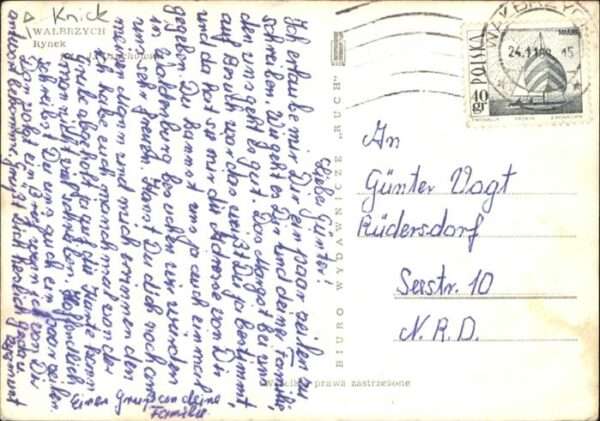 Knick
WAŁBRZYCH
Rynek
Lieber Günter!
Ich erlaube mir Dir ein paar zeilen zu
schreiben. Wie geht es Dir und deine Familie,
den uns geht es gut. Das Margot bei uns
auf war das weißt Du ja bestimmt,
und da hat sie mir die Adresse von Dir
gegeben. Du kannst uns ja auch einmal
in Waldenburg besuchen wir würden
uns sehr freuen. Kanst Du dich noch an
meinen Mann und mich erinnern den
ich habe euch manchmal von der
Grube abgeholt ja auf die Karte kann
man nicht viel schreiben. Hoffentlich
schreibst Du uns auch ein paar zeilen.
ein Brief wenn ich von Dir
antwort bekomme. Grüßt Dich Herzlich Gerda u
Zygmunt
Einen Gruß an deine
Familie
BIURO WYDAWNICZE „RUCH"
WAŁBRZYCH
24.11.68 15
POLSKA
40 gr
An
Günter Vogt
Rüdersdorf
Seestr. 10
N.R.D.
Wszelkie prawa zastrzeżone